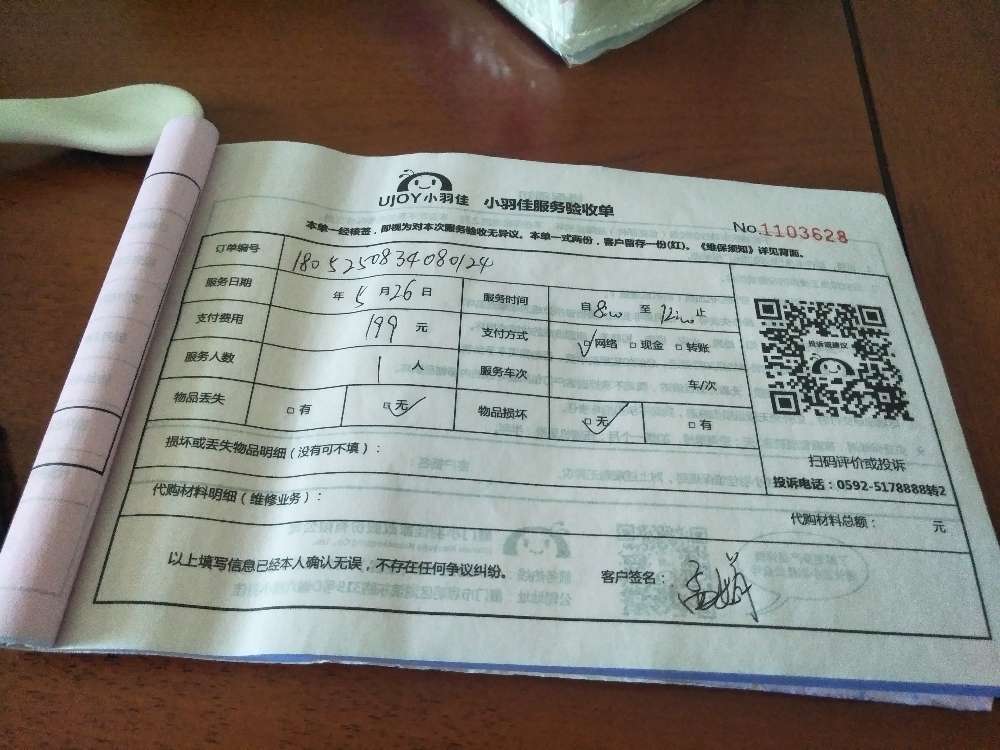 UJOY小羽佳 小羽佳服务验收单
No.1103628
本单一经核签，即视为对本次服务验收无异议。本单一式两份，客户留存一份(红)。《维保须知》详见背面。
订单编号 1805250834080124
服务日期 年 5 月 26 日 服务时间 自 8:00 至 12:00 止
支付费用 199 元 支付方式 ☑网络 □现金 □转账
服务人数 1 人 服务车次 车/次
物品丢失 □有 ☑无 物品损坏 ☑无 □有
投诉或建议
扫码评价或投诉
投诉电话：0592-5178888转2
损坏或丢失物品明细（没有可不填）：
代购材料明细（维修业务）：
代购材料总额： 元
以上填写信息已经本人确认无误，不存在任何争议纠纷。 客户签名：